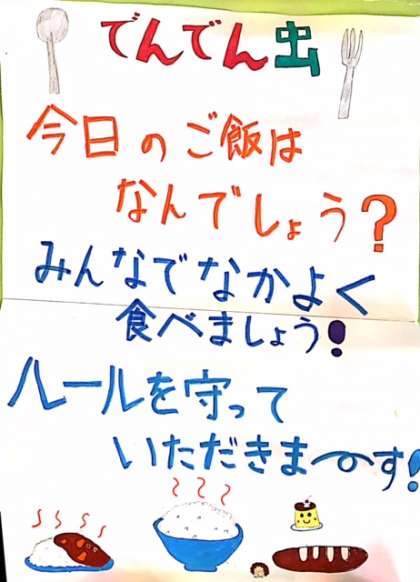 でんでん虫
今日のご飯は
なんでしょう?
みんなでなかよく
食べましょう!
ルールを守って
いただきま〜す!